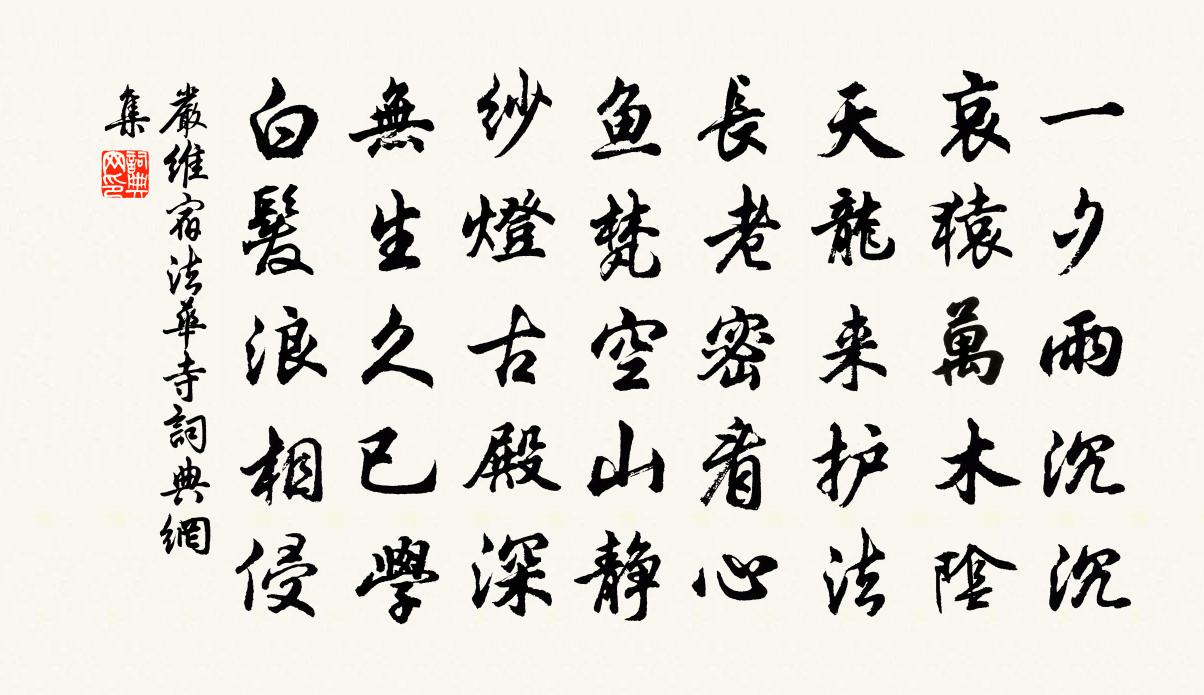 一夕雨沉沉
哀猿萬木陰
天龍来护法
長老密看心
鱼梵空山静
纱燈古殿深
無生久已學
白髮浪相侵
嚴維宿法華寺詞典網
集
詞典
网印